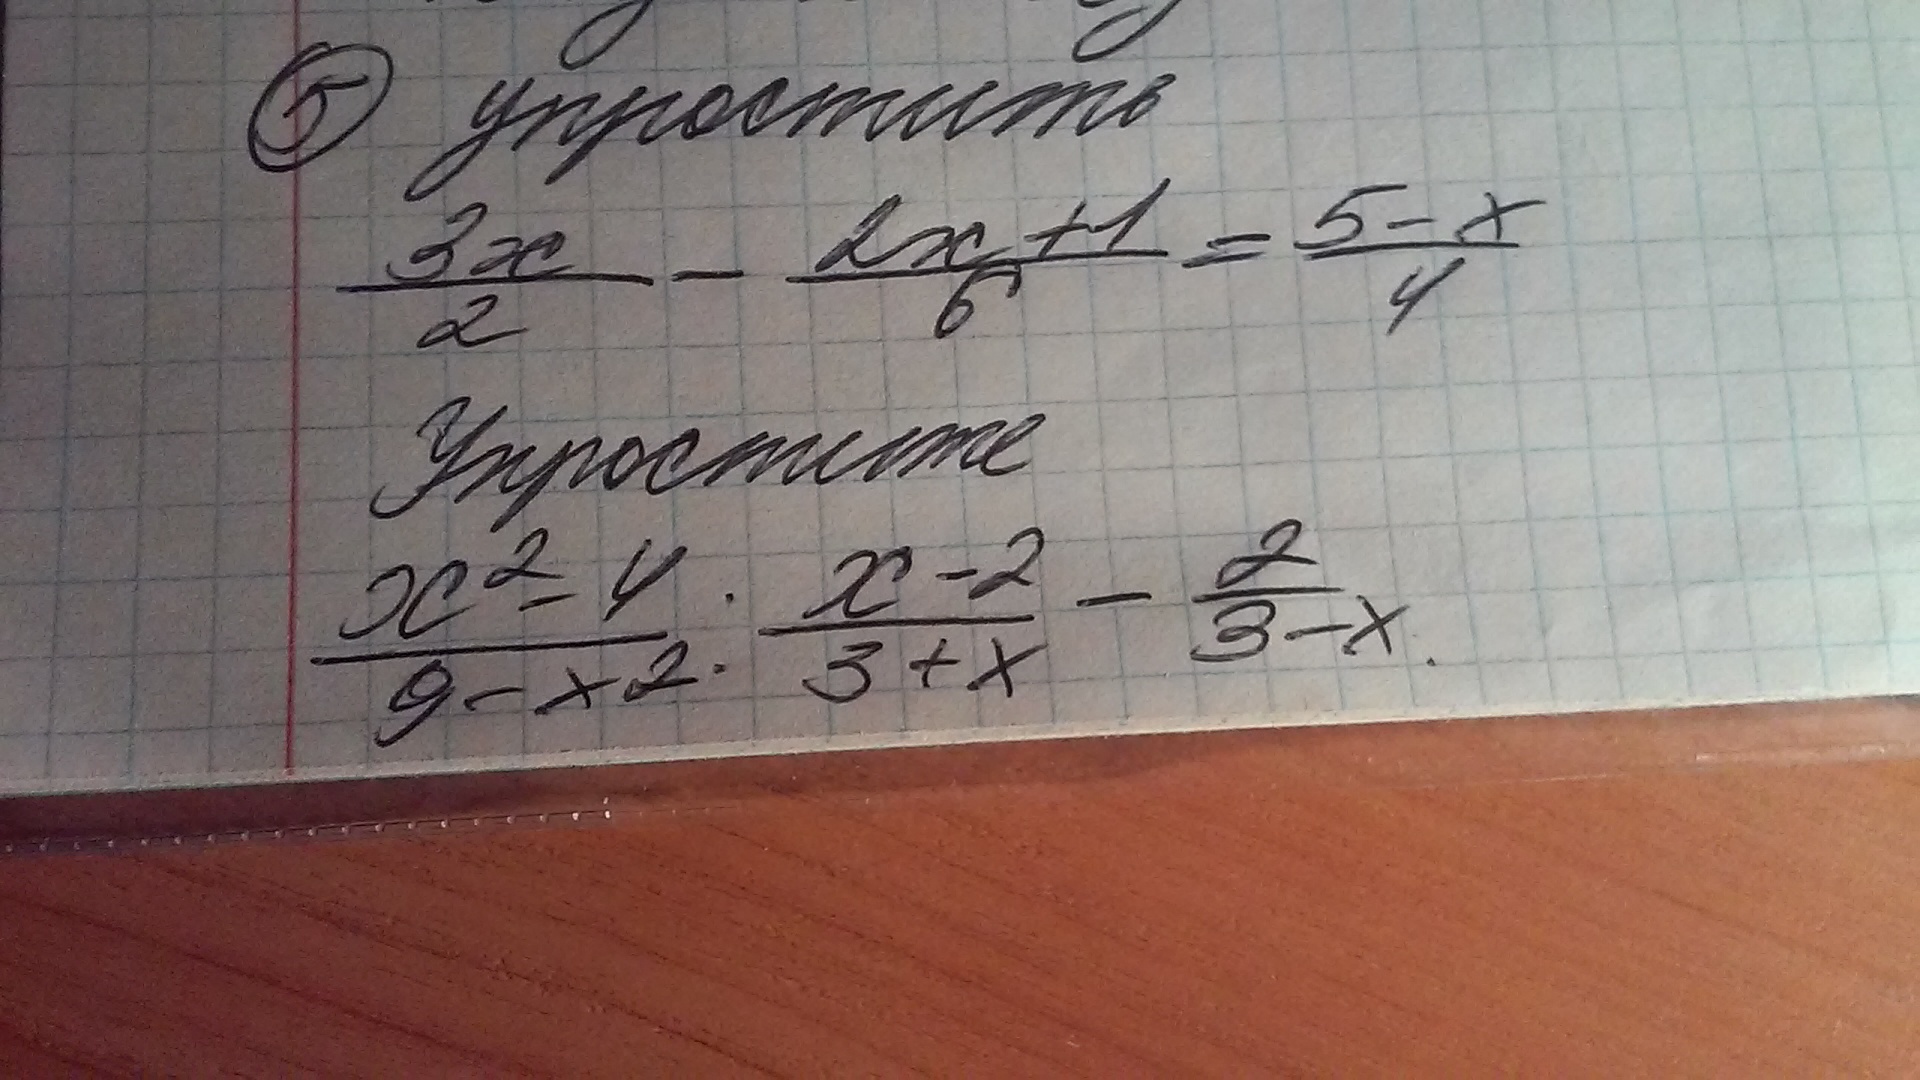 ⑤ упростить
3x/2 - 2x+1/6 = 5-x/4
Упростите
x²-4/9-x2 : x-2/3+x - 2/3-x.